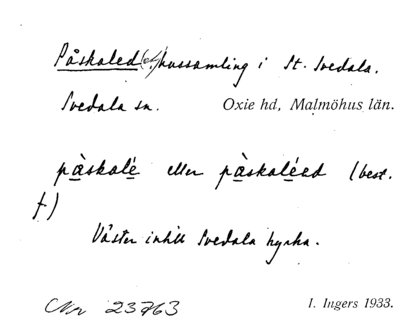 Påskaled(et) hussamling i St. Svedala.
Svedala sn. Oxie hd, Malmöhus län.
pàskalé eller pàskaléed (best.
f)
Väster intill Svedala kyrka.
CNr 23763 I. Ingers 1933.